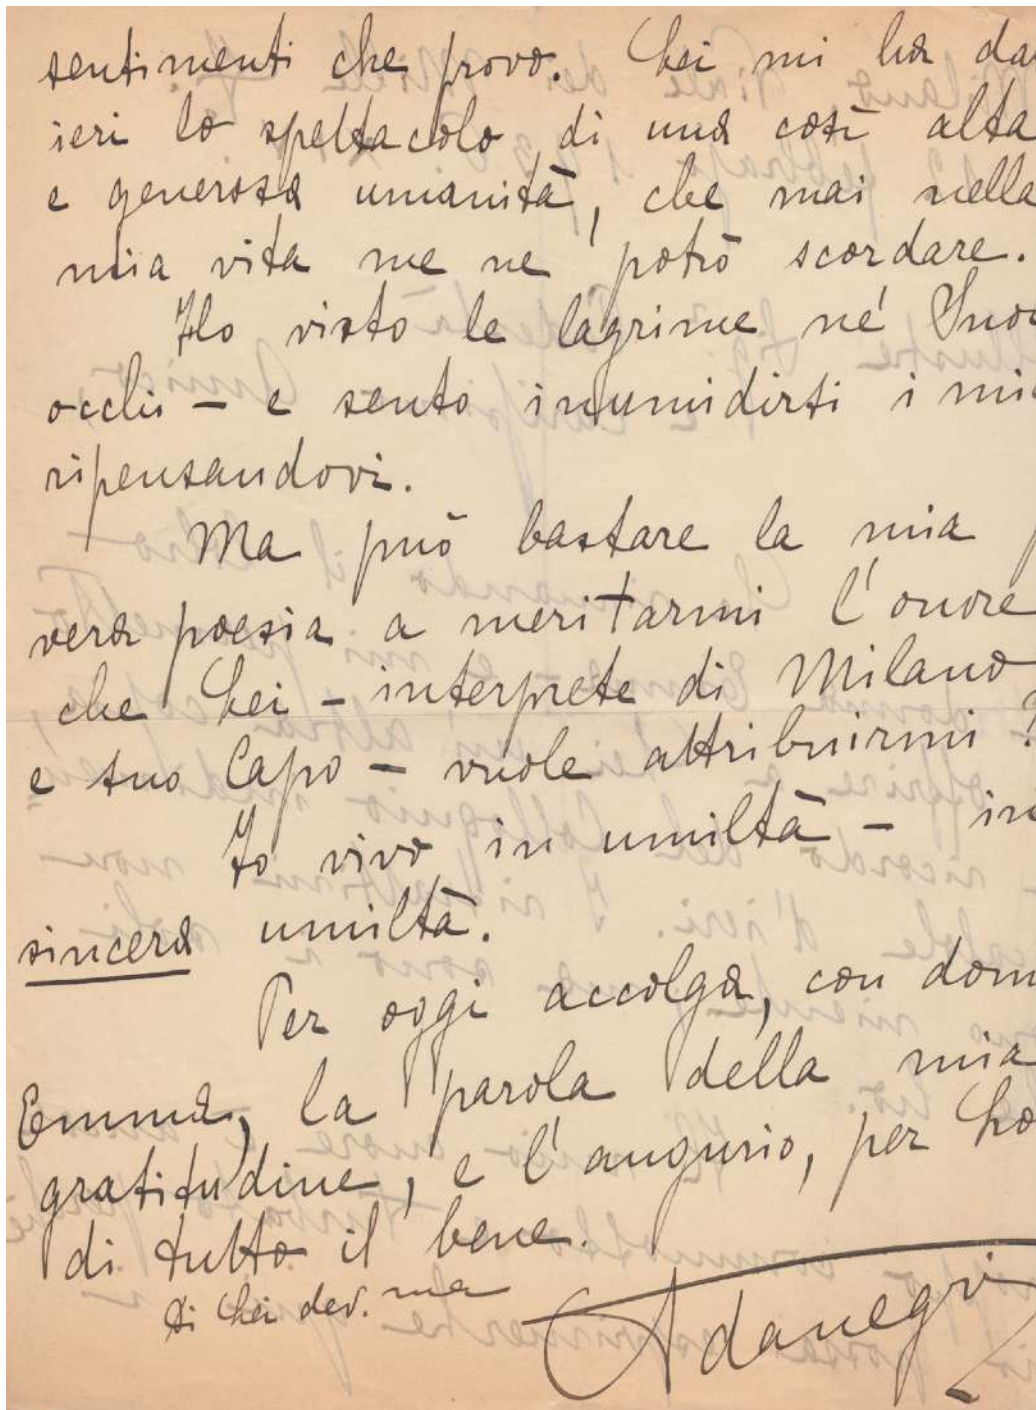 sentimenti che provo. Lei mi ha da
ieri lo spettacolo di una così alta
e generosa umanità, che mai nella
mia vita me ne potrò scordare.
Ho visto le lagrime ne' Suoi
occhi – e sento inumidirsi i mie
ripensandovi.
Ma può bastare la mia p
vera poesia a meritarmi l'onore
che Lei – interprete di Milano
e suo Capo – vuole attribuirmi?
Io vivo in umiltà – in
sincera umiltà.
Per oggi accolga, con donn
Emma, la parola della mia
gratitudine, e l'augurio, per Lo
di tutto il bene.
di Lei dev.ma
Ada Negri